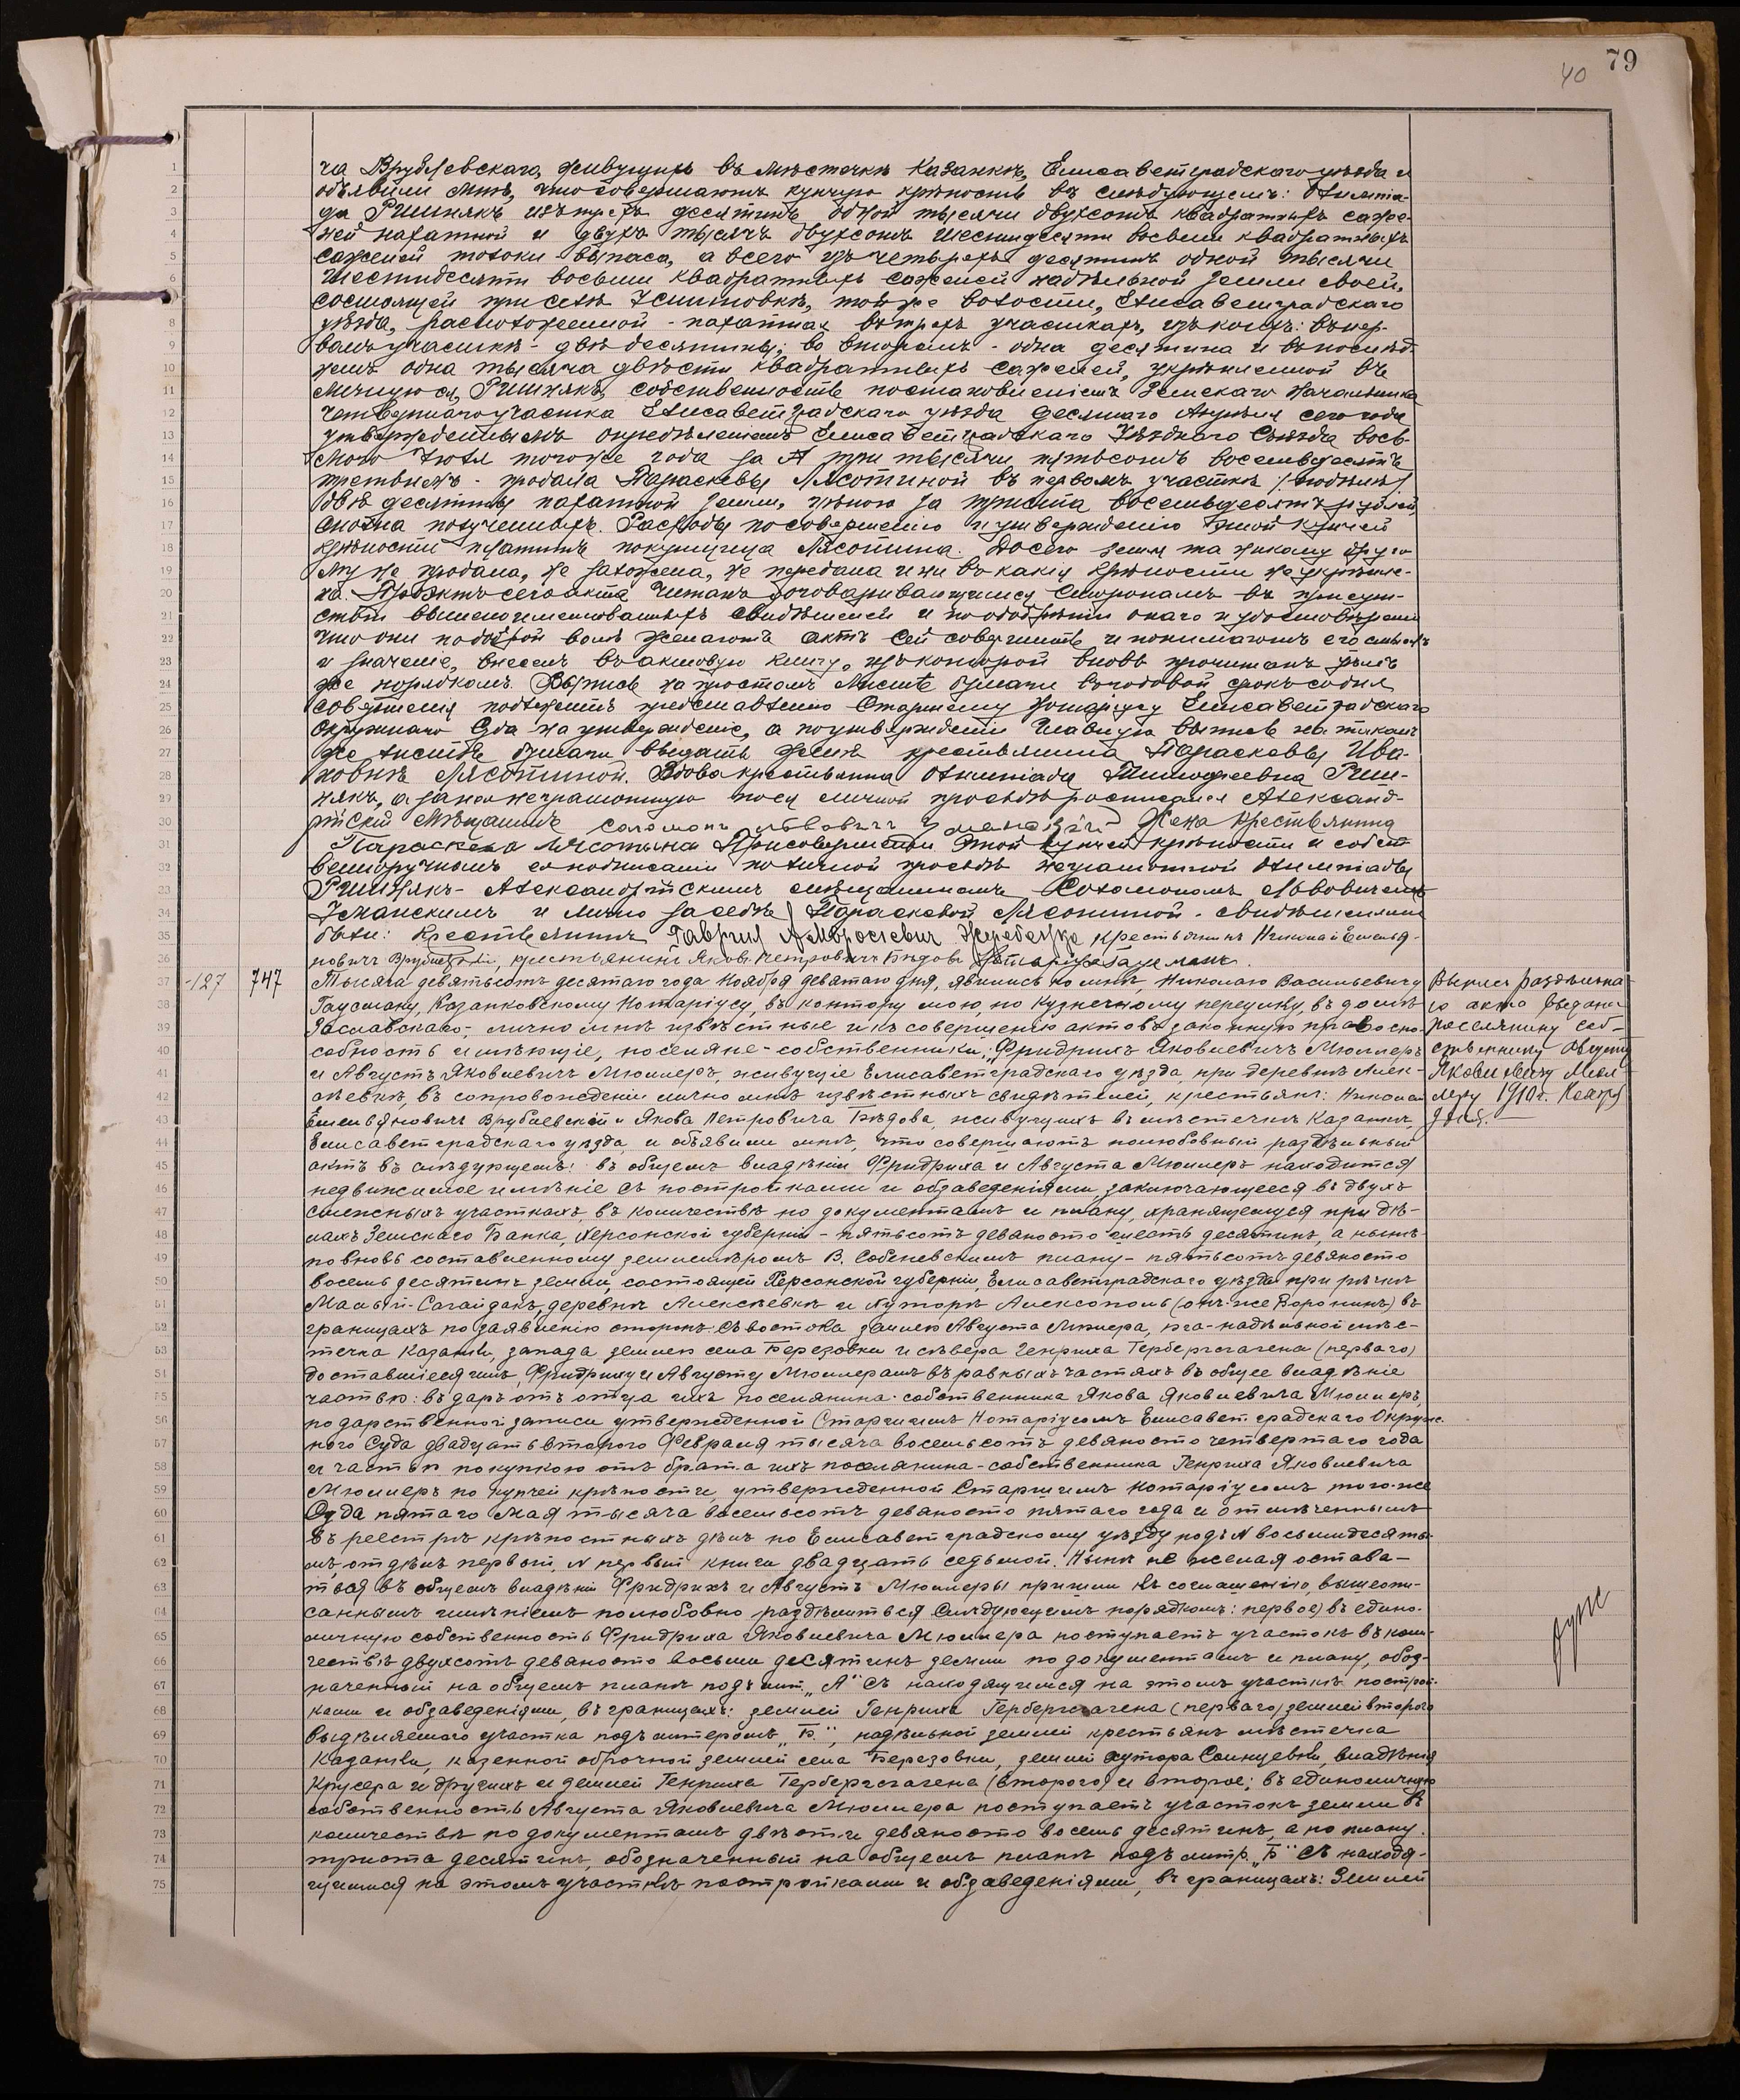 79
40
ча Врублевскаго, живущихъ въ мѣстечкѣ Казанкѣ, Елисаветградскаго уѣзда и
объявили мнѣ, что совершаютъ купчую крѣпость въ слѣдующемъ: Олимпіа-
да Ришнякъ изъ трехъ десятинъ одной тысячи двухсотъ квадратныхъ саже-
ней пахатной и двухъ тысячъ двухсотъ шестидесяти восьми квадратныхъ
саженей толоки-выпаса, а всего изъ четырехъ десятинъ одной тысячи
шестидесяти восьми квадратныхъ саженей надѣльной земли своей,
состоящей при селѣ той же волости, Елисаветградскаго
уѣзда, расположенной - пахатная въ трехъ участкахъ, изъ коихъ: въ пер-
вомъ участкѣ - двѣ десятины; во второмъ - одна десятина и въ послѣд-
немъ одна тысяча двѣсти квадратныхъ саженей, укрѣпленной въ
личную ея, Ришнякъ, собственность постановленіемъ Земскаго Начальника
четвертаго участка Елисаветградскаго уѣзда десятаго Апрѣля сего года
утвержденнымъ опредѣленіемъ Елисаветградскаго Уѣзднаго Съѣзда вось-
мого Іюля того же года за № три тысячи пятьсотъ восемьдесятъ
третьимъ - продала Параскевы Лясотиной въ первомъ участкѣ
двѣ десятины пахатной земли, цѣною за триста восемьдесятъ рублей
сполна полученныхъ. Расходы по совершенію и утвержденію этой купчей
крѣпости платитъ покупщица Лясотина. До сего земля та никому друго-
му не продана, не заложена, не передана и ни въ какія крѣпости не укрѣпле-
на. Проэктъ сего акта читанъ договаривающимся сторонамъ въ присут-
ствіи вышепоименованныхъ свидѣтелей и по одобреніи онаго и удостовѣреніи
что они по доброй волѣ желаютъ актъ сей совершить и понимаютъ его смыслъ
и значеніе, внесенъ въ актовую книгу, изъ которой вновь прочитанъ тѣмъ
же порядкомъ. Выпись на простомъ листѣ бумаги въ годовой срокъ со дня
совершенія подлежитъ представленію Старшему Нотаріусу Елисаветградскаго
Окружнаго Суда на утвержденіе, а по утвержденіи главную выпись на такомъ
же листѣ бумаги выдать женѣ крестьянина Параскевы Ива-
новнѣ Лясотиной. Вдова крестьянина Олимпіада Тимофеевна Риш-
някъ, а за нея неграмотную по ея личной просьбѣ росписался Александ-
рійскій мѣщанинъ Соломонъ Львовичъ Жена крестьянина
Параскева Лясотина При совершеніи этой купчей крѣпости и собст-
венноручномъ ея подписаніи по личной просьбѣ неграмотной Олимпіады
Ришнякъ - Александрійскимъ мѣщаниномъ Соломономъ Львовичемъ
и лично за себя Параскевой Лясотиной - свидѣтелями
были: Крестьянинъ Гавріил Амвросіевич крестьянинъ Николай Емелья-
новичъ Врублевскій, крестьянинъ Яковъ Петровичъ Бѣдовъ Нотаріусъ Гаусманъ.
127 747 Тысяча девятьсотъ десятаго года Ноября девятаго дня, явились ко мнѣ, Николаю Васильевичу
Гаусману, Казанковскому Нотаріусу, въ контору мою, по Кузнечному переулку, въ домѣ
Заславскаго, лично мнѣ извѣстные и къ совершенію актовъ законную правоспо-
собность имѣющіе, поселяне-собственники: Фридрихъ Яковлевичъ Мюллеръ
и Августъ Яковлевичъ Мюллеръ, живущіе Елисаветградскаго уѣзда, при деревнѣ Алек-
сѣевкѣ, въ сопровожденіи лично мнѣ извѣстныхъ свидѣтелей, крестьянъ: Николая
Емельяновичъ Врублевскій и Якова Петровича Бѣдова, живущихъ въ мѣстечкѣ Казанкѣ,
Елисаветградскаго уѣзда, и объявили мнѣ, что совершаютъ полюбовный раздѣльный
актъ въ слѣдующемъ: въ общемъ владѣніи Фридриха и Августа Мюллеръ находится
недвижимое имѣніе съ постройками и обзаведеніями, заключающееся въ двухъ
смежныхъ участкахъ, въ количествѣ по документамъ и плану, хранящемуся при дѣ-
лахъ Земскаго Банка, Херсонской губерніи - пятьсотъ девяносто шесть десятинъ, а нынѣ
по вновь составленному землемѣромъ В. Собеневскимъ плану - пятьсотъ девяносто
восемь десятинъ земли, состоящей Херсонской губерніи, Елисаветградскаго уѣзда при рѣчкѣ
Малый-Сагайдакъ, деревнѣ Алексѣевкѣ и хуторѣ Алексополь (онъ же Воронинъ) въ
границахъ по заявленію сторонъ: съ востока землею Августа Мюллера, юга - надѣльной мѣс-
течка Казанки, запада землею села Березовки и сѣвера Генриха Гербергсгагена (перваго)
доставшееся имъ, Фридриху и Августу Мюллерамъ въ равныхъ частяхъ въ общее владѣніе
частью: въ даръ отъ отца ихъ поселянина-собственника Якова Яковлевича Мюллеръ,
по дарственной записи утвержденной Старшимъ Нотаріусомъ Елисаветградскаго Окруж-
ного Суда двадцать второго Февраля тысяча восемьсотъ девяносто четвертаго года
и частью покупкою отъ брата ихъ поселянина-собственника Генриха Яковлевича
Мюллеръ по купчей крѣпости, утвержденной Старшимъ Нотаріусомъ того-же
Суда пятаго Мая тысяча восемьсотъ девяносто пятаго года и отмѣченнымъ
въ реестрѣ крѣпостныхъ дѣлъ по Елисаветградскому уѣзду подъ № восьмидесяты-
мъ, отдѣлъ первый, № первый книги двадцать седьмой. Нынѣ не желая остава-
ться въ общемъ владѣніи Фридрихъ и Августъ Мюллеры пришли къ соглашенію, вышеопи-
саннымъ имѣніемъ полюбовно раздѣлиться слѣдующимъ порядкомъ: первое) въ едино-
личную собственность Фридриха Яковлевича Мюллера поступаетъ участокъ въ коли-
чествѣ двухсотъ девяносто восьми десятинъ земли по документамъ и плану, обоз-
наченный на общемъ планѣ подъ лит. „А" съ находящимися на этомъ участкѣ построй-
ками и обзаведеніями, въ границахъ: землей Генриха Гербергсгагена (перваго) землей второго
выдѣляемаго участка подъ литерою „Б.", надѣльной землей крестьянъ мѣстечка
Казанки, казенной оброчной землей села Березовки, землей хутора Солнцевки, владѣнія
Крусера и другихъ и землей Генриха Гербергсгагена (второго) и второе; въ единоличную
собственность Августа Яковлевича Мюллера поступаетъ участокъ земли въ
количествѣ по документамъ двѣсти девяносто восемь десятинъ, а по плану
триста десятинъ, обозначенный на общемъ планѣ подъ литр. „Б" съ находя-
щимися на этомъ участкѣ постройками и обзаведеніями, въ границахъ: Землей
Выпись раздѣльна-
го акта выдана
поселянину соб-
ственнику Августу
Яковлевичу Мюл-
леру 1910 г. Ноября
9 дня.